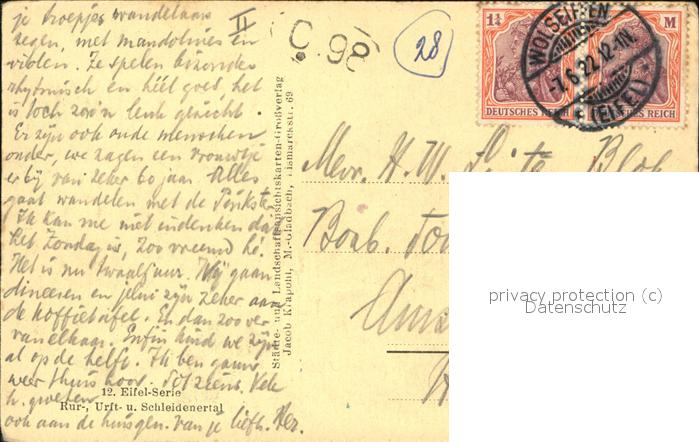 je troepjes wandelaars
II
zegen, met mandolines en
violen. Ze spelen bizonder
rhytmisch en héél goed, het
is toch zoo'n leuk gezicht.
Er zijn ook oude menschen
onder, we zagen een vrouwtje
er bij van zeker 60 jaar. Alles
gaat wandelen met de Pinkster
Ik kan me niet indenken dat
het Zondag is, zoo vreemd hé.
Het is nu twaalf uur. Wij gaan
dineeren en jelui zijn zeker aan
de koffietafel. En dan zoo ver
van elkaar. Enfin kind we zijn
al op de helft. Ik ben gauw
weer thuis hoor. Tot ziens. Vele
h. groeten
ook aan de huisgen. van je liefh.
12. Eifel-Serie
Rur-, Urft- u. Schleidenertal
Städte- und Landschaftsansichtskarten-Großverlag
Jacob Krapohl, M.-Gladbach, Bismarckstr. 69
C. 98
28
1¼ M
DEUTSCHES REICH
DEUTSCHES REICH
WOLSEIFEN
-7.6.22.12-1N.
(EIFEL)
Mevr. H. W.
Bosb.
privacy protection (c)
Datenschutz